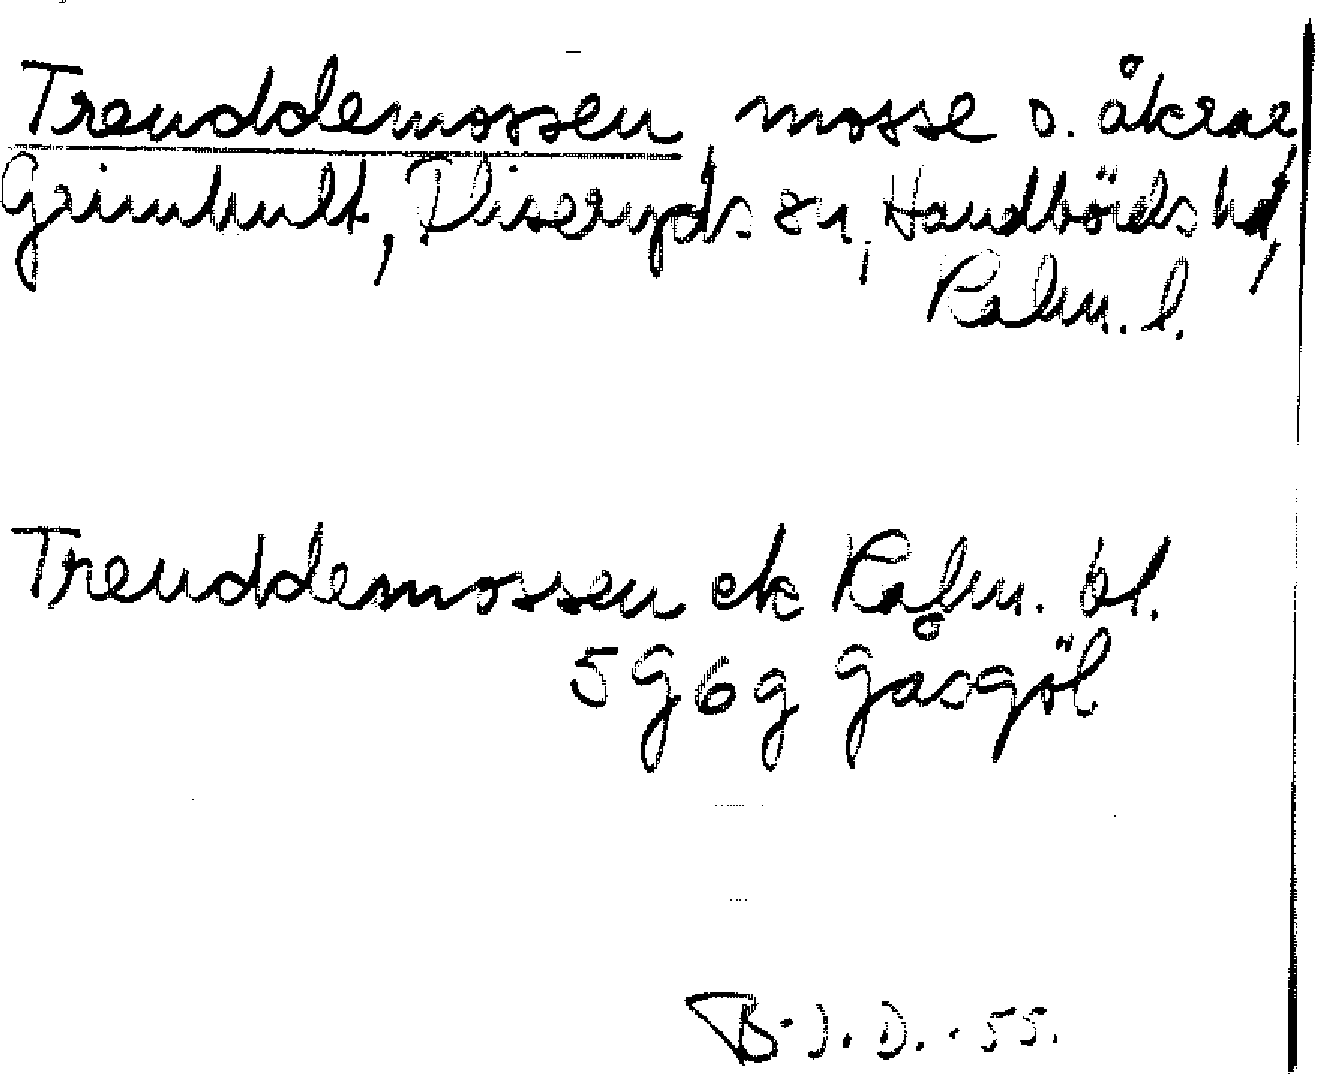 Treuddemossen, mosse o. åkrar
Grimhult, Fliseryds sn, Handbörds hd,
Kalm. l.
Treuddemossen ek Kalm. bl.
5 G 6 g Gåsgöl
B. J. D. - 55.